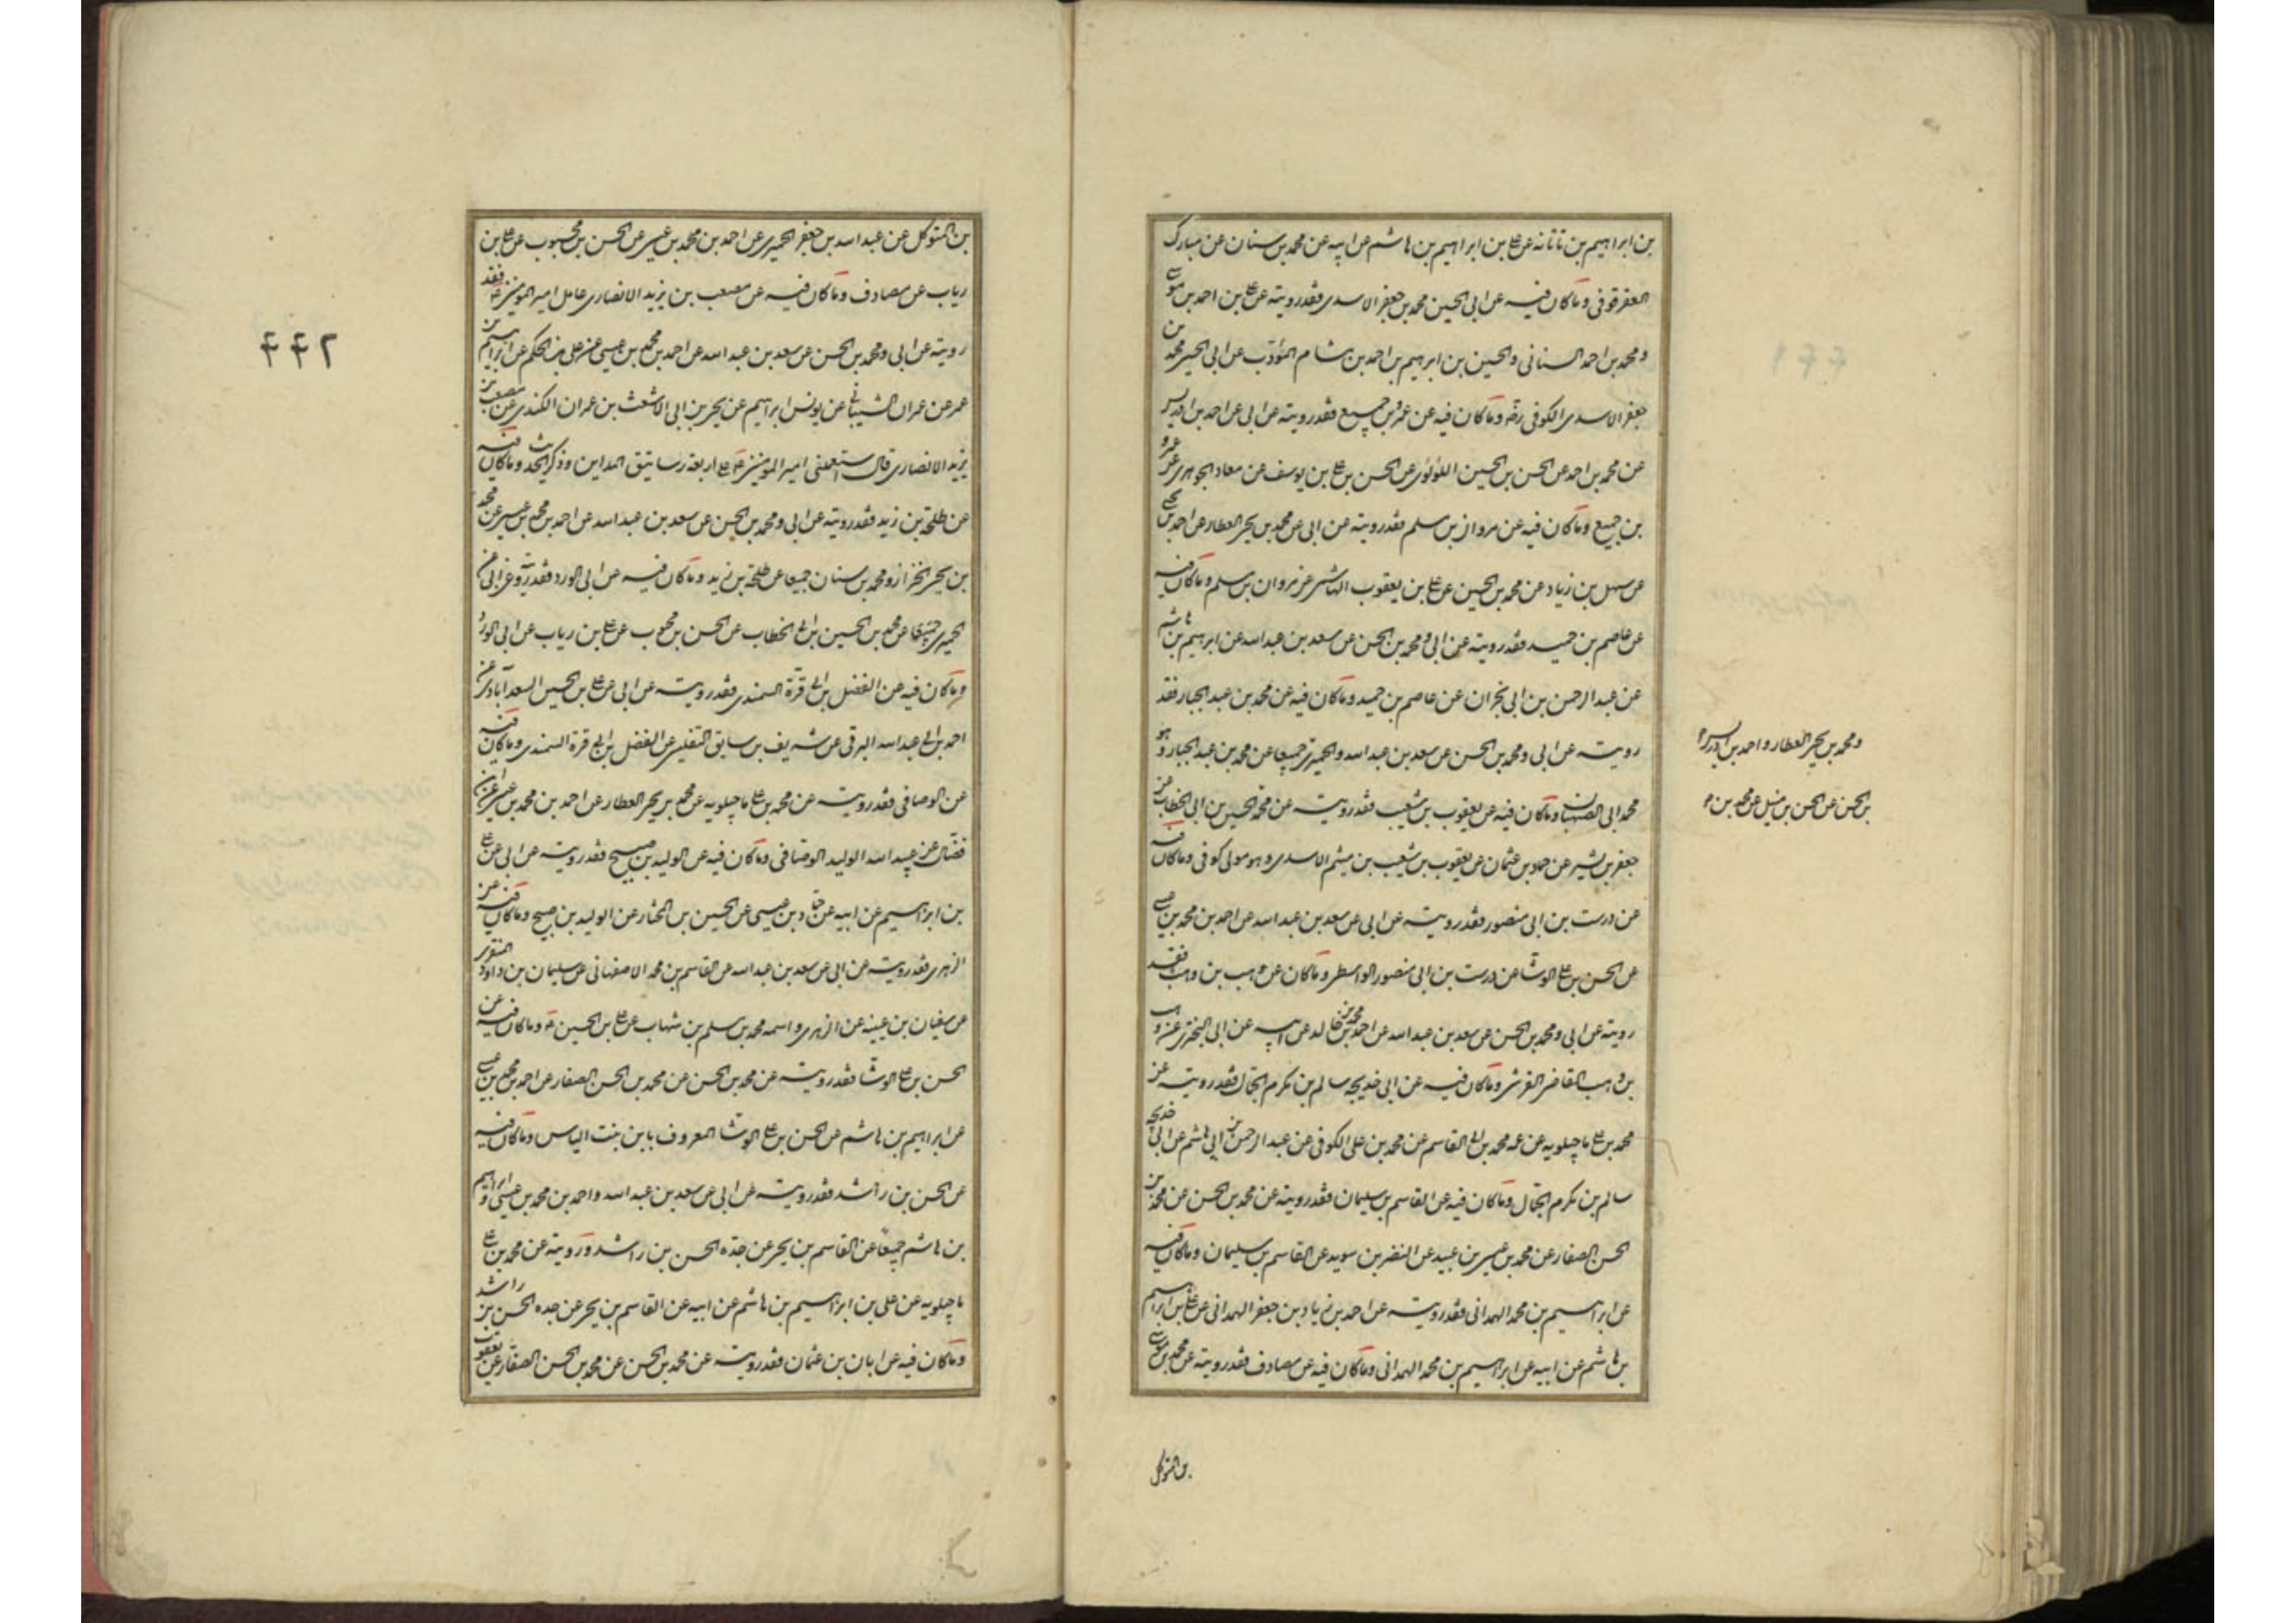 بن ابراهيم بن تاتانه عن علي بن ابراهيم بن هاشم عن ابيه عن محمد بن سنان عن مبارك
العقرقوفي وما كان فيه عن ابي الحسين محمد بن جعفر الاسدي فقد رويته عن علي بن احمد بن موسى
ومحمد بن احمد السناني والحسين بن ابرهيم بن احمد بن هشام المؤدب عن ابي الحسين محمد بن
جعفر الاسدي الكوفي رضه وما كان فيه عن عمرو بن جميع فقد رويته عن ابي عن احمد بن ادريس
عن محمد بن احمد عن الحسن بن الحسين اللؤلؤي عن الحسن بن علي بن يوسف عن معاد الجوهري عن عمرو
بن جميع وما كان فيه عن مروان بن مسلم فقد رويته عن ابي عن محمد بن يحيى العطار عن احمد بن يحيى
عن سهل بن زياد عن محمد بن الحسين عن علي بن يعقوب الهاشمي عن مروان بن مسلم وما كان فيه
عن عاصم بن حميد فقد رويته عن ابي ومحمد بن الحسن عن سعد بن عبد الله عن ابرهيم بن هاشم
عن عبد الرحمن بن ابي نجران عن عاصم بن حميد وما كان فيه عن محمد بن عبد الجبار فقد
رويته عن ابي ومحمد بن الحسن عن سعد بن عبد الله والحميري جميعا عن محمد بن عبد الجبار وهو
محمد ابي الصهبان وما كان فيه عن يعقوب بن شعيب فقد رويته عن محمد الحسين بن ابي الخطاب عن
جعفر بن بشير عن حماد بن عثمان عن يعقوب بن شعيب بن ميثم الاسدي وهو مولى كوفي وما كان فيه
عن درست بن ابي منصور فقد رويته عن ابي عن سعد بن عبد الله عن احمد بن محمد بن عيسى
عن الحسن بن علي الوشا عن درست بن ابي منصور الواسطي وما كان عن وهب بن وهب فقد
رويته عن ابي ومحمد بن الحسن عن سعد بن عبد الله عن احمد بن محمد بن خالد عن ابيه عن ابي البختري عن وهب
بن وهب القاضي القرشي وما كان فيه عن ابي خديجه سالم بن مكرم الجمال فقد رويته عن
محمد بن علي ماجيلويه عن عمه محمد بن ابي القاسم عن محمد بن علي الكوفي عن عبد الرحمن بن ابي هاشم عن ابي خديجه
سالم بن مكرم الجمال وما كان فيه عن القاسم بن سليمان فقد رويته عن محمد بن الحسن عن محمد بن
الحسن الصفار عن محمد بن عيسى بن عبيد عن النضر بن سويد عن القاسم بن سليمان وما كان فيه
عن ابراهيم بن محمد الهمداني فقد رويته عن احمد بن زياد بن جعفر الهمداني عن علي بن ابراهيم
بن هاشم عن ابيه عن ابراهيم بن محمد الهمداني وما كان فيه عن مصادف فقد رويته عن محمد بن موسى
ومحمد بن يحيى العطار واحمد بن ادريس
بن الحسن عن الحسن بن متيل عن محمد بن
بن المتوكل
٤٤٢
بن المتوكل عن عبد الله بن جعفر الحميري عن احمد بن محمد بن عيسى عن الحسن بن محبوب عن علي بن
رياب عن مصادف وما كان فيه عن مصعب بن يزيد الانصاري عامل امير المومنين ع فقد
رويته عن ابي ومحمد بن الحسن عن سعد بن عبد الله عن احمد بن محمد بن عيسى عن علي بن الحكم عن ابراهيم بن
عمر عن عمران الشيباني عن يونس ابراهيم عن يحيى بن ابي الاشعث بن عمران الكندي عن مصعب بن
يزيد الانصاري قال استعملني امير المومنين ع على اربعة رساتيق المداين وذكر الحديث وما كان فيه
عن طلحة بن زيد فقد رويته عن ابي ومحمد بن الحسن عن سعد بن عبد الله عن احمد بن محمد بن عيسى عن محمد
بن يحيى الخزاز ومحمد بن سنان جميعا عن طلحة بن زيد وما كان فيه عن ابي الورد فقد رويته عن ابي عن
الحميري جميعا عن محمد بن الحسين بن ابي الخطاب عن الحسن بن محبوب عن علي بن رياب عن ابي الورد
وما كان فيه عن الفضل بن ابي قرة السمندي فقد رويته عن ابي عن علي بن الحسين السعدآبادي عن
احمد بن ابي عبد الله البرقي عن شريف بن سابق التفليسي عن الفضل بن ابي قرة السمندي وما كان فيه
عن الوصافي فقد رويته عن محمد بن علي ماجيلويه عن محمد بن يحيى العطار عن احمد بن محمد بن عيسى عن ابن
فضال عن عبيد الله الوليد الوصافي وما كان فيه عن الوليد بن صبيح فقد رويته عن ابي عن علي
بن ابراهيم عن ابيه عن حماد بن عيسى عن الحسين بن المختار عن الوليد بن صبيح وما كان فيه عن
الزهري فقد رويته عن ابي عن سعد بن عبد الله عن القاسم بن محمد الاصفهاني عن سليمان بن داود المنقري
عن سفيان بن عيينه عن الزهري واسمه محمد بن مسلم بن شهاب عن علي بن الحسين ع وما كان فيه عن
الحسن بن علي الوشا فقد رويته عن محمد بن الحسن عن محمد بن الحسن الصفار عن احمد بن محمد بن عيسى
عن ابراهيم بن هاشم عن الحسن بن علي الوشا المعروف بابن بنت الياس وما كان فيه
عن الحسن بن راشد فقد رويته عن ابي عن سعد بن عبد الله واحمد بن محمد بن عيسى وابراهيم
بن هاشم جميعا عن القاسم بن يحيى عن جده الحسن بن راشد ورويته عن محمد بن علي
ماجيلويه عن علي بن ابراهيم بن هاشم عن ابيه عن القاسم بن يحيى عن جده الحسن بن راشد
وما كان فيه عن ابان بن عثمان فقد رويته عن محمد بن الحسن عن محمد بن الحسن الصفار عن يعقوب